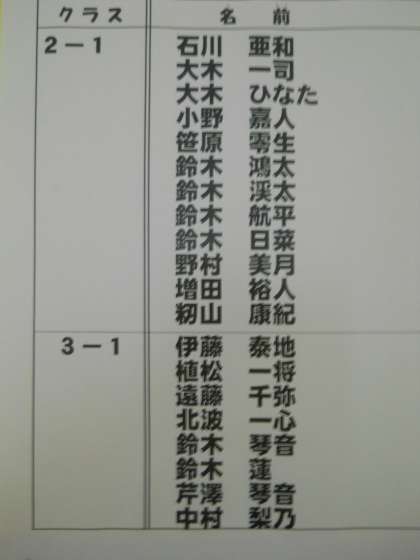 クラス 名 前
2-1 石川 亜和
大木 一司
大木 ひなた
小野 嘉人
笹原 零生
鈴木 鴻太
鈴木 渓太
鈴木 航平
鈴木 日菜
野村 美月
増田 裕人
籾山 康紀
3-1 伊藤 泰地
植松 一将
遠藤 千弥
北波 一心
鈴木 琴音
鈴木 蓮
芹澤 琴音
中村 梨乃